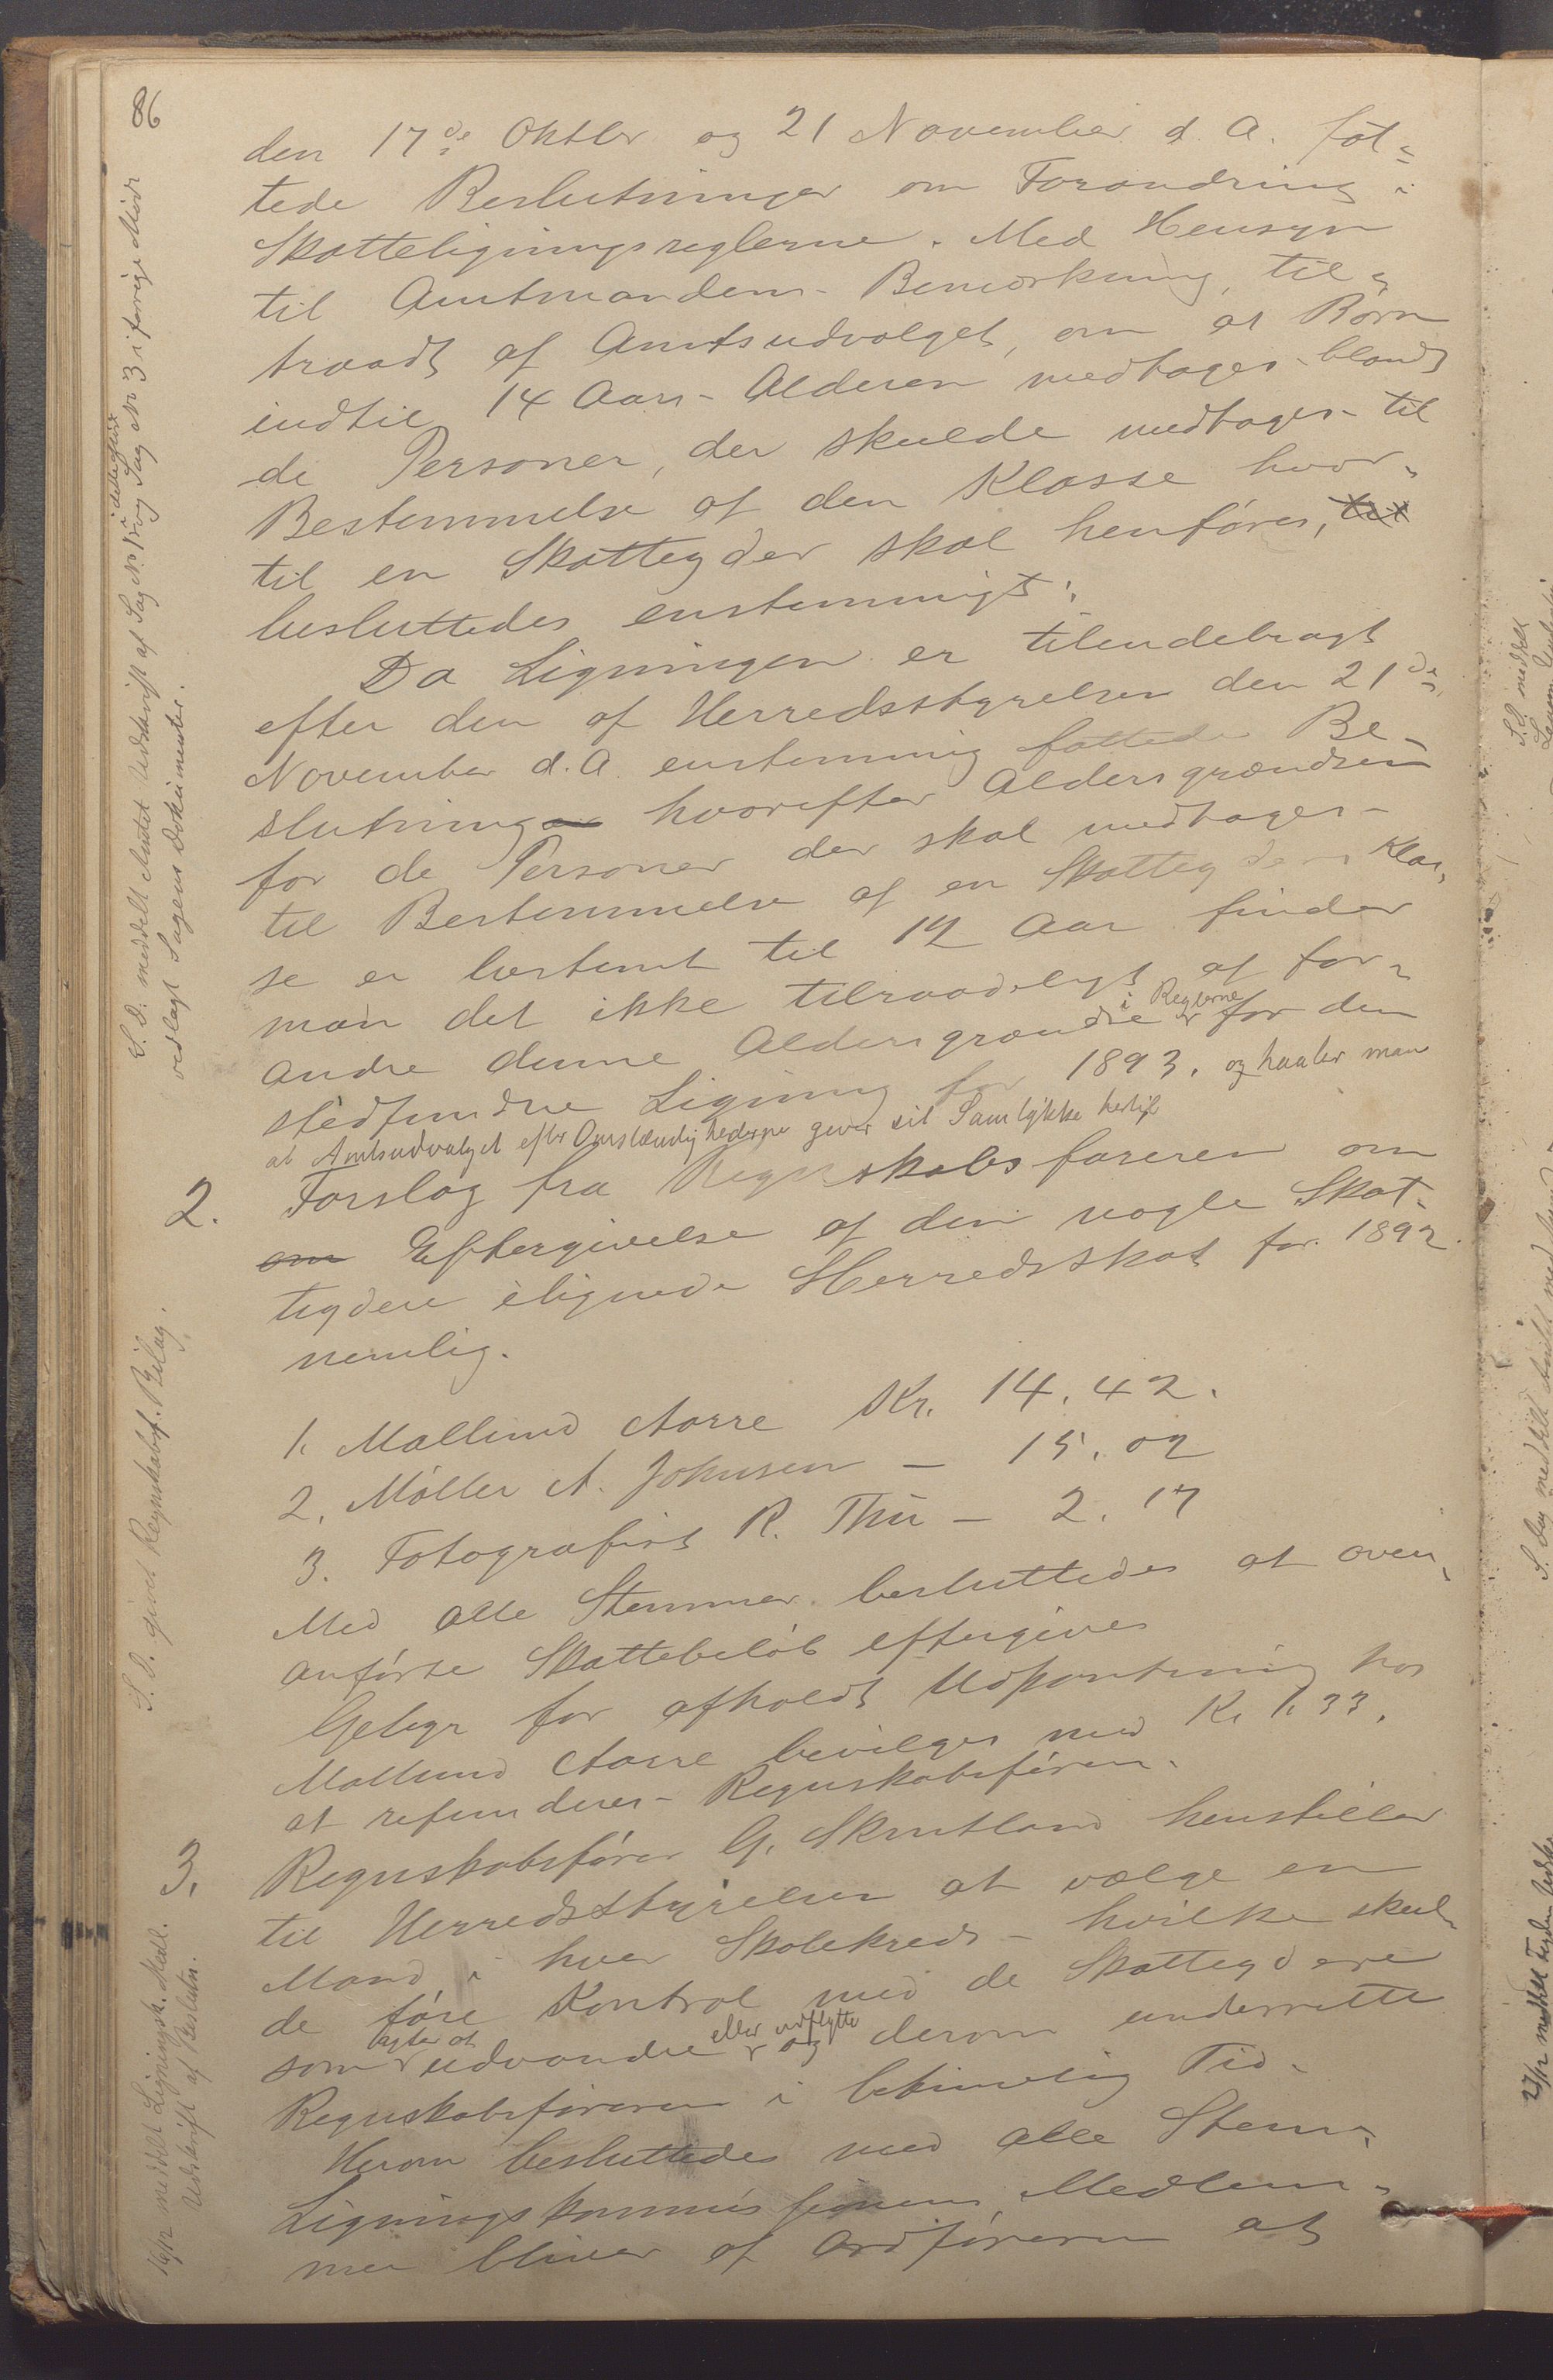 86
den 17de Oktbr og 21 November d. A. fat-
tede Beslutninger om Forandring i
Skatteligningsreglerne. Med Hensyn
til Amtmandens Bemærkning, til-
traadt af Amtsudvalget, om at Børn
indtil 14 Aars Alderen medtages blandt
de Personer, der skulde medtages til
Bestemmelse af den Klasse hvor-
til en Skatteyder skal henføres, til
besluttedes enstemmigt:
Da Ligningen er tilendebragt
efter den af Herredsstyrelsen den 21de
November d. A. enstemmig fattede Be-
slutninger hvorefter Aldersgrændsen
for de Personer der skal medtages
til Bestemmelse af en Skatteyders Klas-
se er bestemt til 12 Aar finder
man det ikke tilraadeligt at for-
andre denne Aldersgrændse i Reglerne for den
stedfundne Ligning for 1893. og haaber man
at Amtsudvalget efter Omstændighederne giver sit Samtykke hertil
2. Forslag fra Regnskabsføreren om
om Eftergivelse af den nogle Skat-
teydere ilignede Herredsskat for 1892
nemlig.
1. Mallund Aarre Kr. 14.42.
2. Møller A. Johnsen - 15.02
3. Fotografist R. Thu - 2.17
Med alle Stemmer besluttedes at oven-
anførte Skattebeløb eftergives
Gebyr for afholdt Udpantning hos
Mallund Aarre bevilges med Kr 1.33.
at refunderes Regnskabsføreren.
3. Regnskabsfører G. Skrutland henstiller
til Herredsstyrelsen at vælge en
Mand i hver Skolekreds hvilke skul-
de føre Kontrol med de Skatteydere
som agter at udvandre eller udflytte og derom underrette
Regnskabsføreren i betimelig Tid.
Herom besluttedes med alle Stem-
Ligningskommissionens Medlem-
mer bliver af Ordføreren at
S. D. meddelt Amtet Udskrift af Sag No 1 i dette Møde og Sag No 3 i forrige Møde
vedlagt Sagens Dokumenter.
S. D. givet Regnskabsf. Bilag.
16/12 meddelt Ligningsk. Medl.
Udskrift af Beslutn.